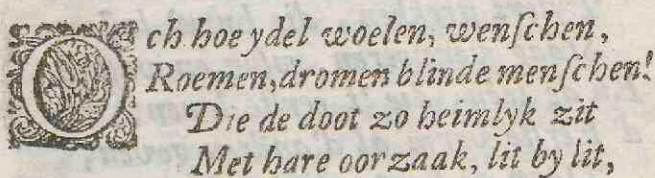 Och hoe ydel woelen, wenſchen,
Roemen, dromen blinde menſchen!
Die de doot zo heimlyk zit
Met hare oorzaak, lit by lit,